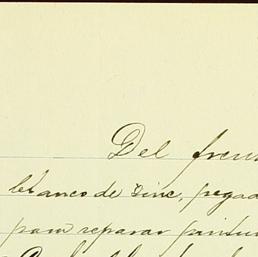 Del fren
blanco de zinc, pega
para reparar pintu